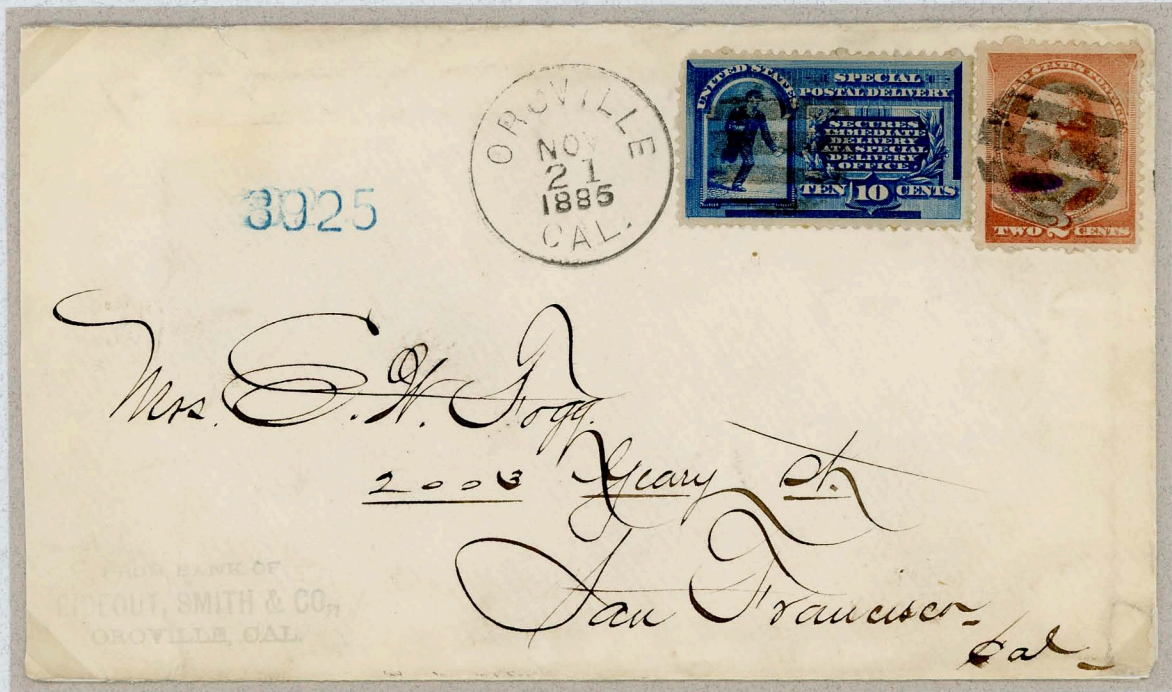 OROVILLE
NOV
21
1885
CAL.
UNITED STATES
SPECIAL
POSTAL DELIVERY
SECURES
IMMEDIATE
DELIVERY
AT A SPECIAL
DELIVERY
OFFICE.
TEN 10 CENTS
TWO 2 CENTS
3025
Mrs. E. W. Fogg.
2003 Geary St.
San Francisco
Cal
BANK OF
RIDEOUT, SMITH & CO.,
OROVILLE, CAL.